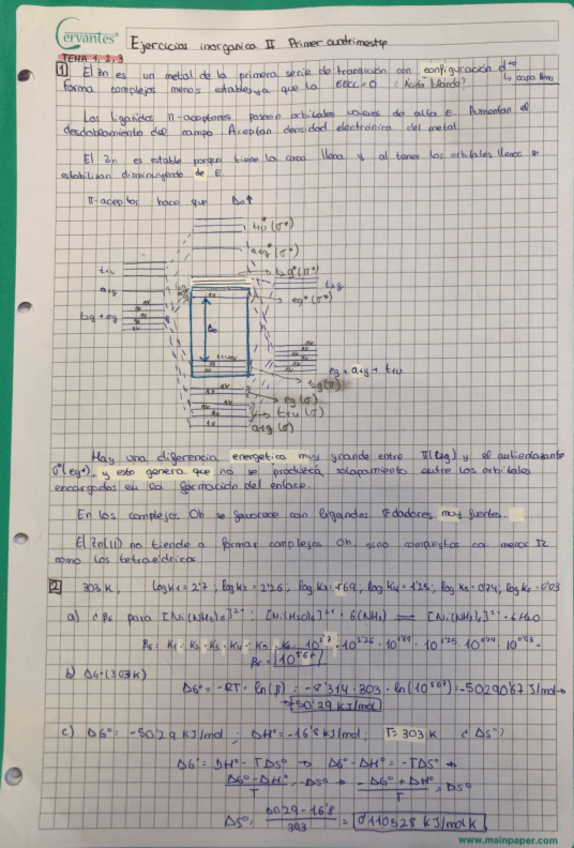 Cervantes®
Ejercicios inorganica II Primer cuatrimestre
TEMA 1, 2, 3
1 El Zn es un metal de la primera serie de transición con configuración d¹⁰
↳ capa llena
forma complejos menos estables ya que la EECC=0 ¿Ácido blando?
Los ligandos π-aceptores poseen orbitales vacíos de alta E. Aumentan el
desdoblamiento del campo Aceptan densidad electrónica del metal
El Zn es estable porque tiene la capa llena y al tener los orbitales llenos se
estabilizan disminuyendo de E.
π-aceptor hace que Δo↑
t1u*(σ*)
a1g*(σ*)
t1u
t2g*(π*)
a1g
t2g
eg*(σ*)
t2g+eg
Δo
eg + a1g + t1u
t2g(π)
eg(σ)
t1u(σ)
a1g(σ)
Hay una diferencia energetica muy grande entre π(t2g) y el antienlazante
σ*(eg*), y esto genera que no se producirá solapamiento entre los orbitales
encargados en la formación del enlace.
En los complejos Oh se favorece con ligandos σ dadores muy fuertes.
El Zn(II) no tiende a formar complejos Oh, sino compuestos con menor IC
como los tetraédricos
2 303 K, log K1 = 2'7; log K2 = 2'26; log K3 = 1'69; log K4 = 1'25; log K5 = 0'74, log K6 = 0'03
a) ¿β6 para [Ni(NH3)6]²⁺: [Ni(H2O)6]²⁺ + 6(NH3) ⇌ [Ni(NH3)6]²⁺ + 6H2O
β6 = K1 · K2 · K3 · K4 · K5 · K6 = 10^2'7 · 10^2'26 · 10^1'69 · 10^1'25 · 10^0'74 · 10^0'03 =
β6 = 10^8'67
b) ΔG° (303K)
ΔG° = -RT · ln(β) = -8'314 · 303 · ln(10^8'67) = -50290'67 J/mol →
→ -50'29 KJ/mol
c) ΔG° = -50'29 KJ/mol ; ΔH° = -16'8 KJ/mol ; T = 303 K ¿ΔS°?
ΔG° = ΔH° - TΔS° → ΔG° - ΔH° = -TΔS° →
ΔG° - ΔH° / T = -ΔS° → -ΔG° + ΔH° / T = ΔS°
ΔS° = 50'29 - 16'8 / 303 = 0'110528 KJ/mol K
www.mainpaper.com